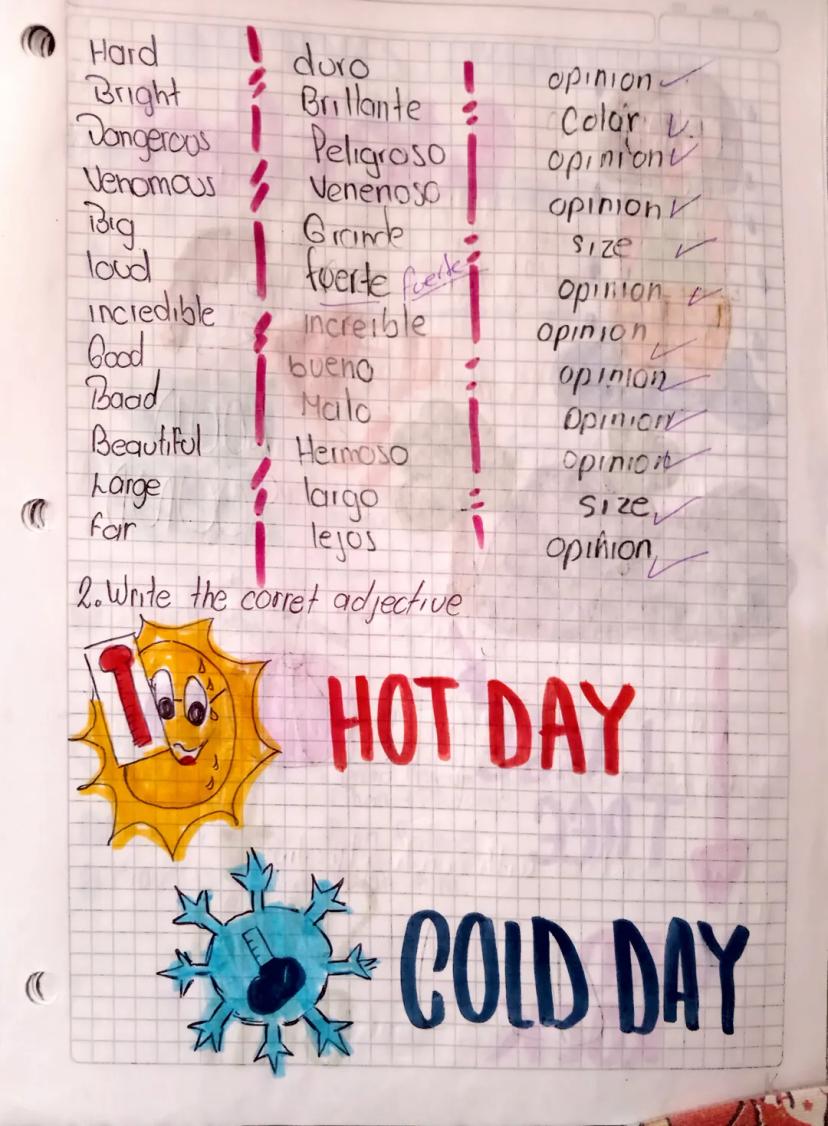 Hard duro opinion
Bright Brillante Color
Dangerous Peligroso opinion
Venomous Venenoso opinion
Big Grande size
loud fuerte fuerte opinion
incredible increible opinion
Good bueno opinion
Baad Malo Opinion
Beautiful Hermoso opinion
Large largo size
far lejos opinion
2. Write the corret adjective
HOT DAY
COLD DAY